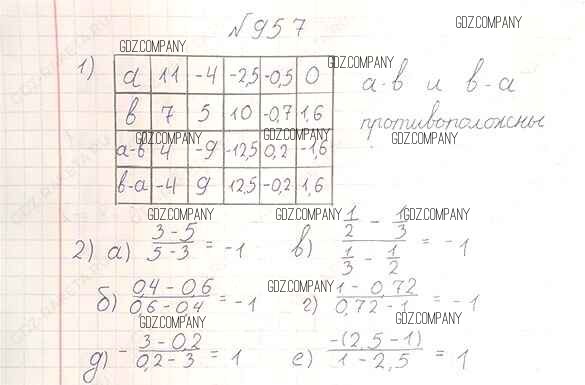 №957
GDZ.COMPANY
GDZ.COMPANY
1)
a 11 -4 -2,5 -0,5 0
GDZ.COMPANY
a-в и в-a
в 7 5 10 -0,7 1,6
противоположны
GDZ.COMPANY
GDZ.COMPANY
GDZ.COMPANY
a-в 4 -9 -12,5 0,2 -1,6
в-a -4 9 12,5 -0,2 1,6
GDZ.COMPANY
GDZ.COMPANY
2) а) (3-5)/(5-3) = -1 в) (1/2 - 1/3)/(1/3 - 1/2) = -1
GDZ.COMPANY
б) (0,4-0,6)/(0,6-0,4) = -1 г) (1-0,72)/(0,72-1) = -1
GDZ.COMPANY
GDZ.COMPANY
д) -(3-0,2)/(0,2-3) = 1 е) (-(2,5-1))/(1-2,5) = 1